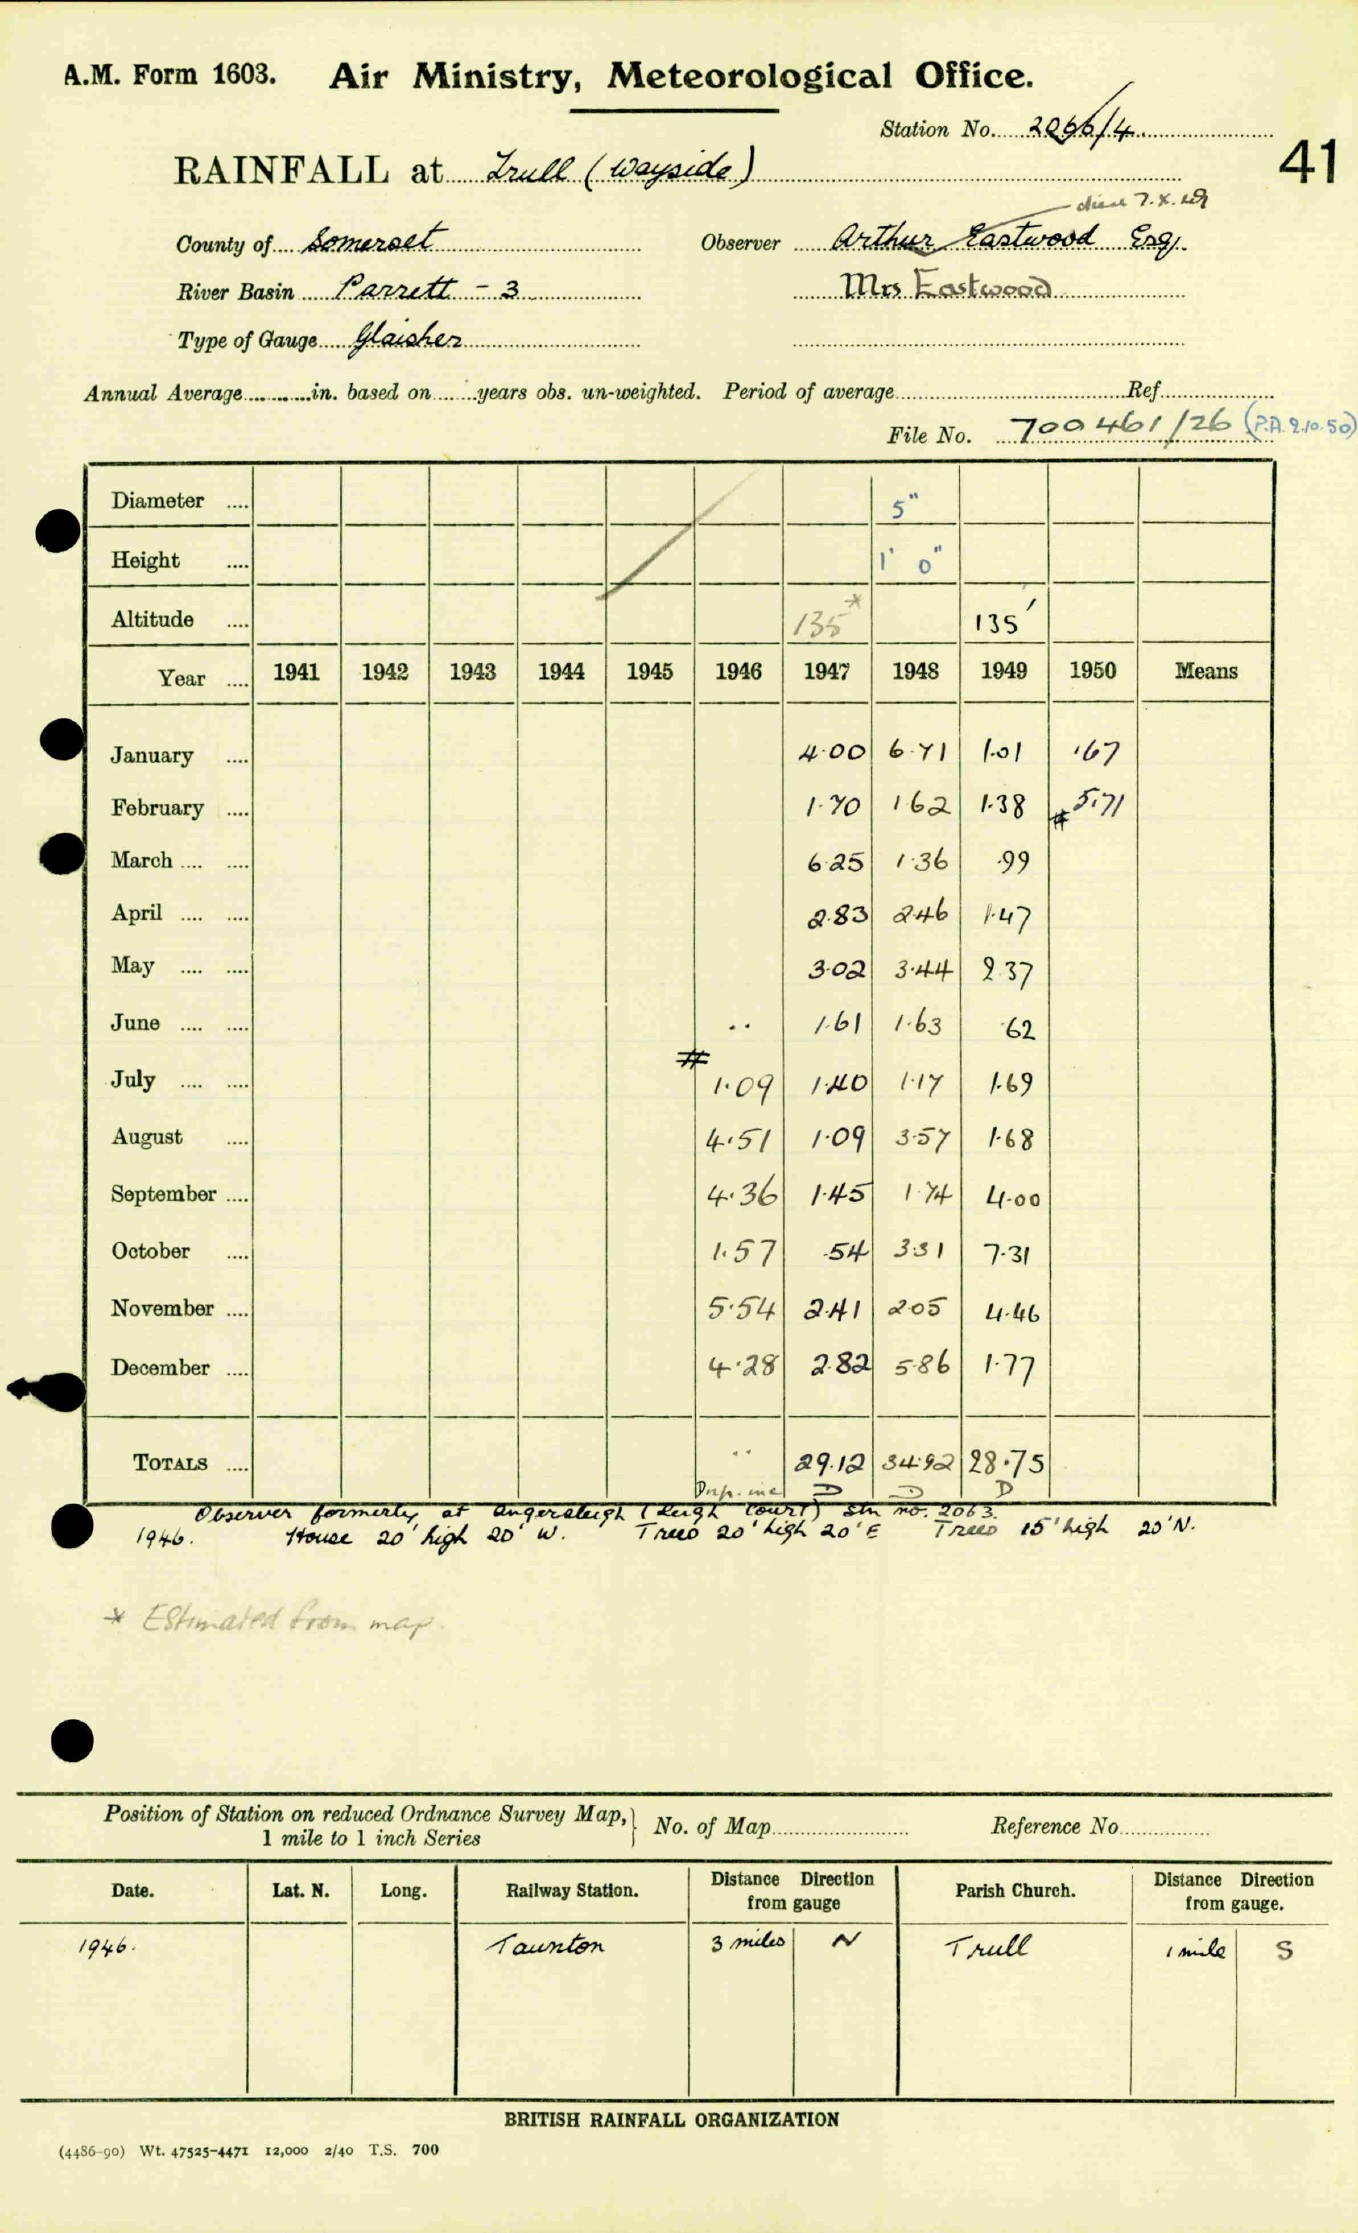 A.M. Form 1603. Air Ministry, Meteorological Office.
Station No. 2066/4
41
RAINFALL at Trull (Wayside)
died 7.x.49
County of Somerset Observer Arthur Eastwood Esq.
River Basin Parrett - 3 Mrs Eastwood
Type of Gauge Glaisher
Annual Average in. based on years obs. un-weighted. Period of average Ref.
File No. 700461/26 (P.A. 2.10.50)
Diameter 5"
Height 1' 0"
Altitude 135* 135'
Year 1941 1942 1943 1944 1945 1946 1947 1948 1949 1950 Means
January 4.00 6.71 1.01 .67
February 1.70 1.62 1.38 # 5.71
March 6.25 1.36 .99
April 2.83 2.46 1.47
May 3.02 3.44 2.37
June .. 1.61 1.63 .62
#
July 1.09 1.40 1.17 1.69
August 4.51 1.09 3.57 1.68
September 4.36 1.45 1.74 4.00
October 1.57 .54 3.31 7.31
November 5.54 2.41 2.05 4.46
December 4.28 2.82 5.86 1.77
TOTALS .. 29.12 34.92 28.75
D D D
Observer formerly at Angersleigh (Leigh Court) Stn no. 2063.
1946. House 20' high 20' W. Trees 20' high 20' E Trees 15' high 20' N.
* Estimated from map.
Position of Station on reduced Ordnance Survey Map,
1 mile to 1 inch Series } No. of Map Reference No.
Date. Lat. N. Long. Railway Station. Distance Direction from gauge Parish Church. Distance Direction from gauge.
1946. Taunton 3 miles N Trull 1 mile S
BRITISH RAINFALL ORGANIZATION
(4486-90) Wt. 47525-4471 12,000 2/40 T.S. 700